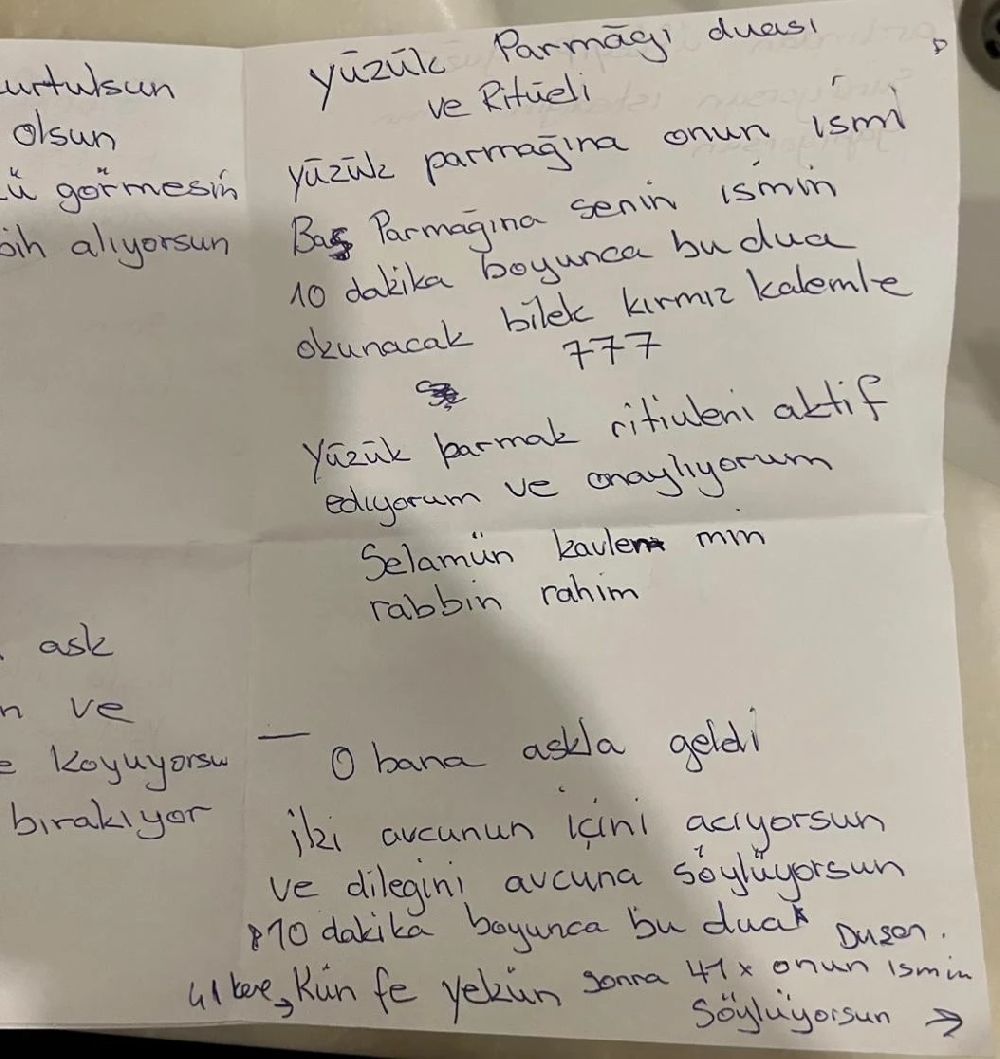 urtulsun
olsun
ü görmesin
bih alıyorsun
ask
n ve
e koyuyorsu
bırakıyor
Yüzük Parmağı duası
ve Ritüeli
Yüzük parmağına onun ismi
Baş Parmağına senin ismin
10 dakika boyunca bu dua
okunacak bilek kırmız kalemle
777
Yüzük parmak ritiuleni aktif
ediyorum ve onaylıyorum
Selamün kavlen min
rabbin rahim
— O bana askla geldi
İki avcunun içini acıyorsun
ve dilegini avcuna söylüyorsun
10 dakika boyunca bu dua
41 kere, Kün fe yekün sonra 41x onun ismin
Söylüyorsun →